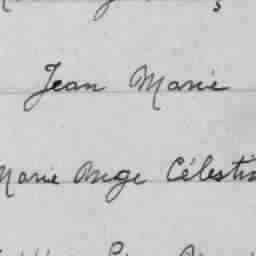 Jean Marie
Marie Ange Célestin